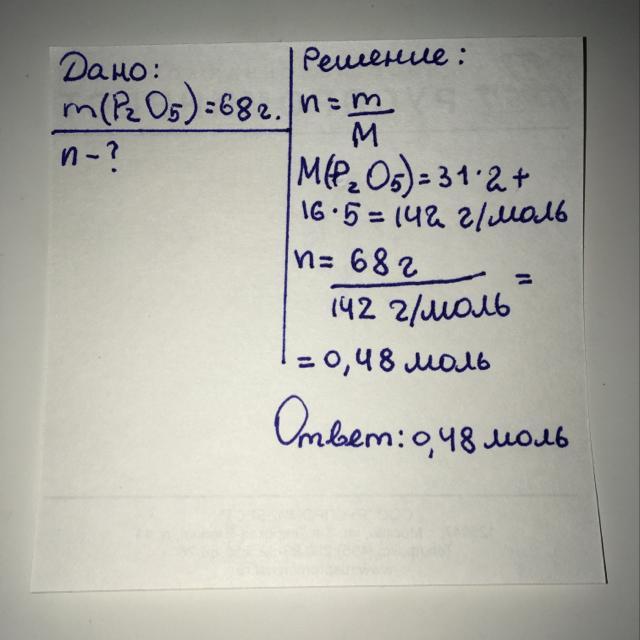 Дано:
m(P₂O₅)=68г.
n-?
Решение:
n=m/M
M(P₂O₅)=31·2+
16·5=142 г/моль
n=68г/142 г/моль=
=0,48 моль
Ответ: 0,48 моль